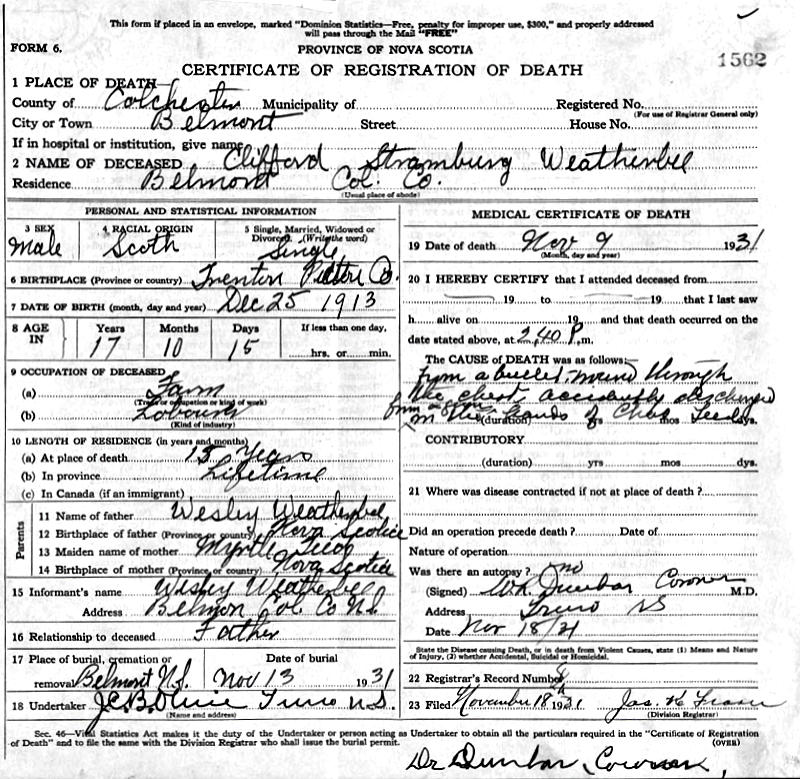 This form if placed in an envelope, marked "Dominion Statistics—Free, penalty for improper use, $300," and properly addressed
will pass through the Mail "FREE"
FORM 6.
PROVINCE OF NOVA SCOTIA
1562
CERTIFICATE OF REGISTRATION OF DEATH
1 PLACE OF DEATH—
County of Colchester Municipality of Registered No.
(For use of Registrar General only)
City or Town Belmont Street House No.
If in hospital or institution, give name
2 NAME OF DECEASED Clifford Stramburg Weatherbee
Residence Belmont Col. Co.
(Usual place of abode)
PERSONAL AND STATISTICAL INFORMATION
3 SEX 4 RACIAL ORIGIN 5 Single, Married, Widowed or
Divorced. (Write the word)
Male Scoth Single
6 BIRTHPLACE (Province or country) Trenton Pictou Co.
7 DATE OF BIRTH (month, day and year) Dec 25 1913
8 AGE IN Years Months Days If less than one day,
17 10 15 hrs. or min.
9 OCCUPATION OF DECEASED
(a) Farm
(Trade or occupation or kind of work)
(b) Labourer
(Kind of industry)
10 LENGTH OF RESIDENCE (in years and months)
(a) At place of death 15 Years
(b) In province Lifetime
(c) In Canada (if an immigrant)
Parents
11 Name of father Wesley Weatherbee
12 Birthplace of father (Province or country) Nova Scotia
13 Maiden name of mother Myrtle
14 Birthplace of mother (Province, or country) Nova Scotia
15 Informant's name Wesley Weatherbee
Address Belmon Col Co N.S.
16 Relationship to deceased Father
17 Place of burial, cremation or Date of burial
removal Belmont N.S. Nov 13 1931
18 Undertaker Truro N.S.
(Name and address)
MEDICAL CERTIFICATE OF DEATH
19 Date of death Nov 9 1931
(Month, day and year)
20 I HEREBY CERTIFY that I attended deceased from
19 to 19 that I last saw
h alive on 19 and that death occurred on the
date stated above, at 2.40 P.m.
The CAUSE of DEATH was as follows:
From a bullet wound through
the chest accidently discharged
in the hands of Chas
(duration) yrs mos dys.
CONTRIBUTORY
(duration) yrs mos dys.
21 Where was disease contracted if not at place of death ?
Did an operation precede death ? Date of
Nature of operation
Was there an autopsy ? no
(Signed) Dunbar Coroner M.D.
Address Truro NS
Date Nov 18/31
State the Disease causing Death, or in death from Violent Causes, state (1) Means and Nature
of Injury, (2) whether Accidental, Suicidal or Homicidal.
22 Registrar's Record Number
23 Filed November 18 1931 Jas. K Fraser
(Division Registrar)
Sec. 46—Vital Statistics Act makes it the duty of the Undertaker or person acting as Undertaker to obtain all the particulars required in the "Certificate of Registration
of Death" and to file the same with the Division Registrar who shall issue the burial permit. (OVER)
Dr Dunbar, Coroner,